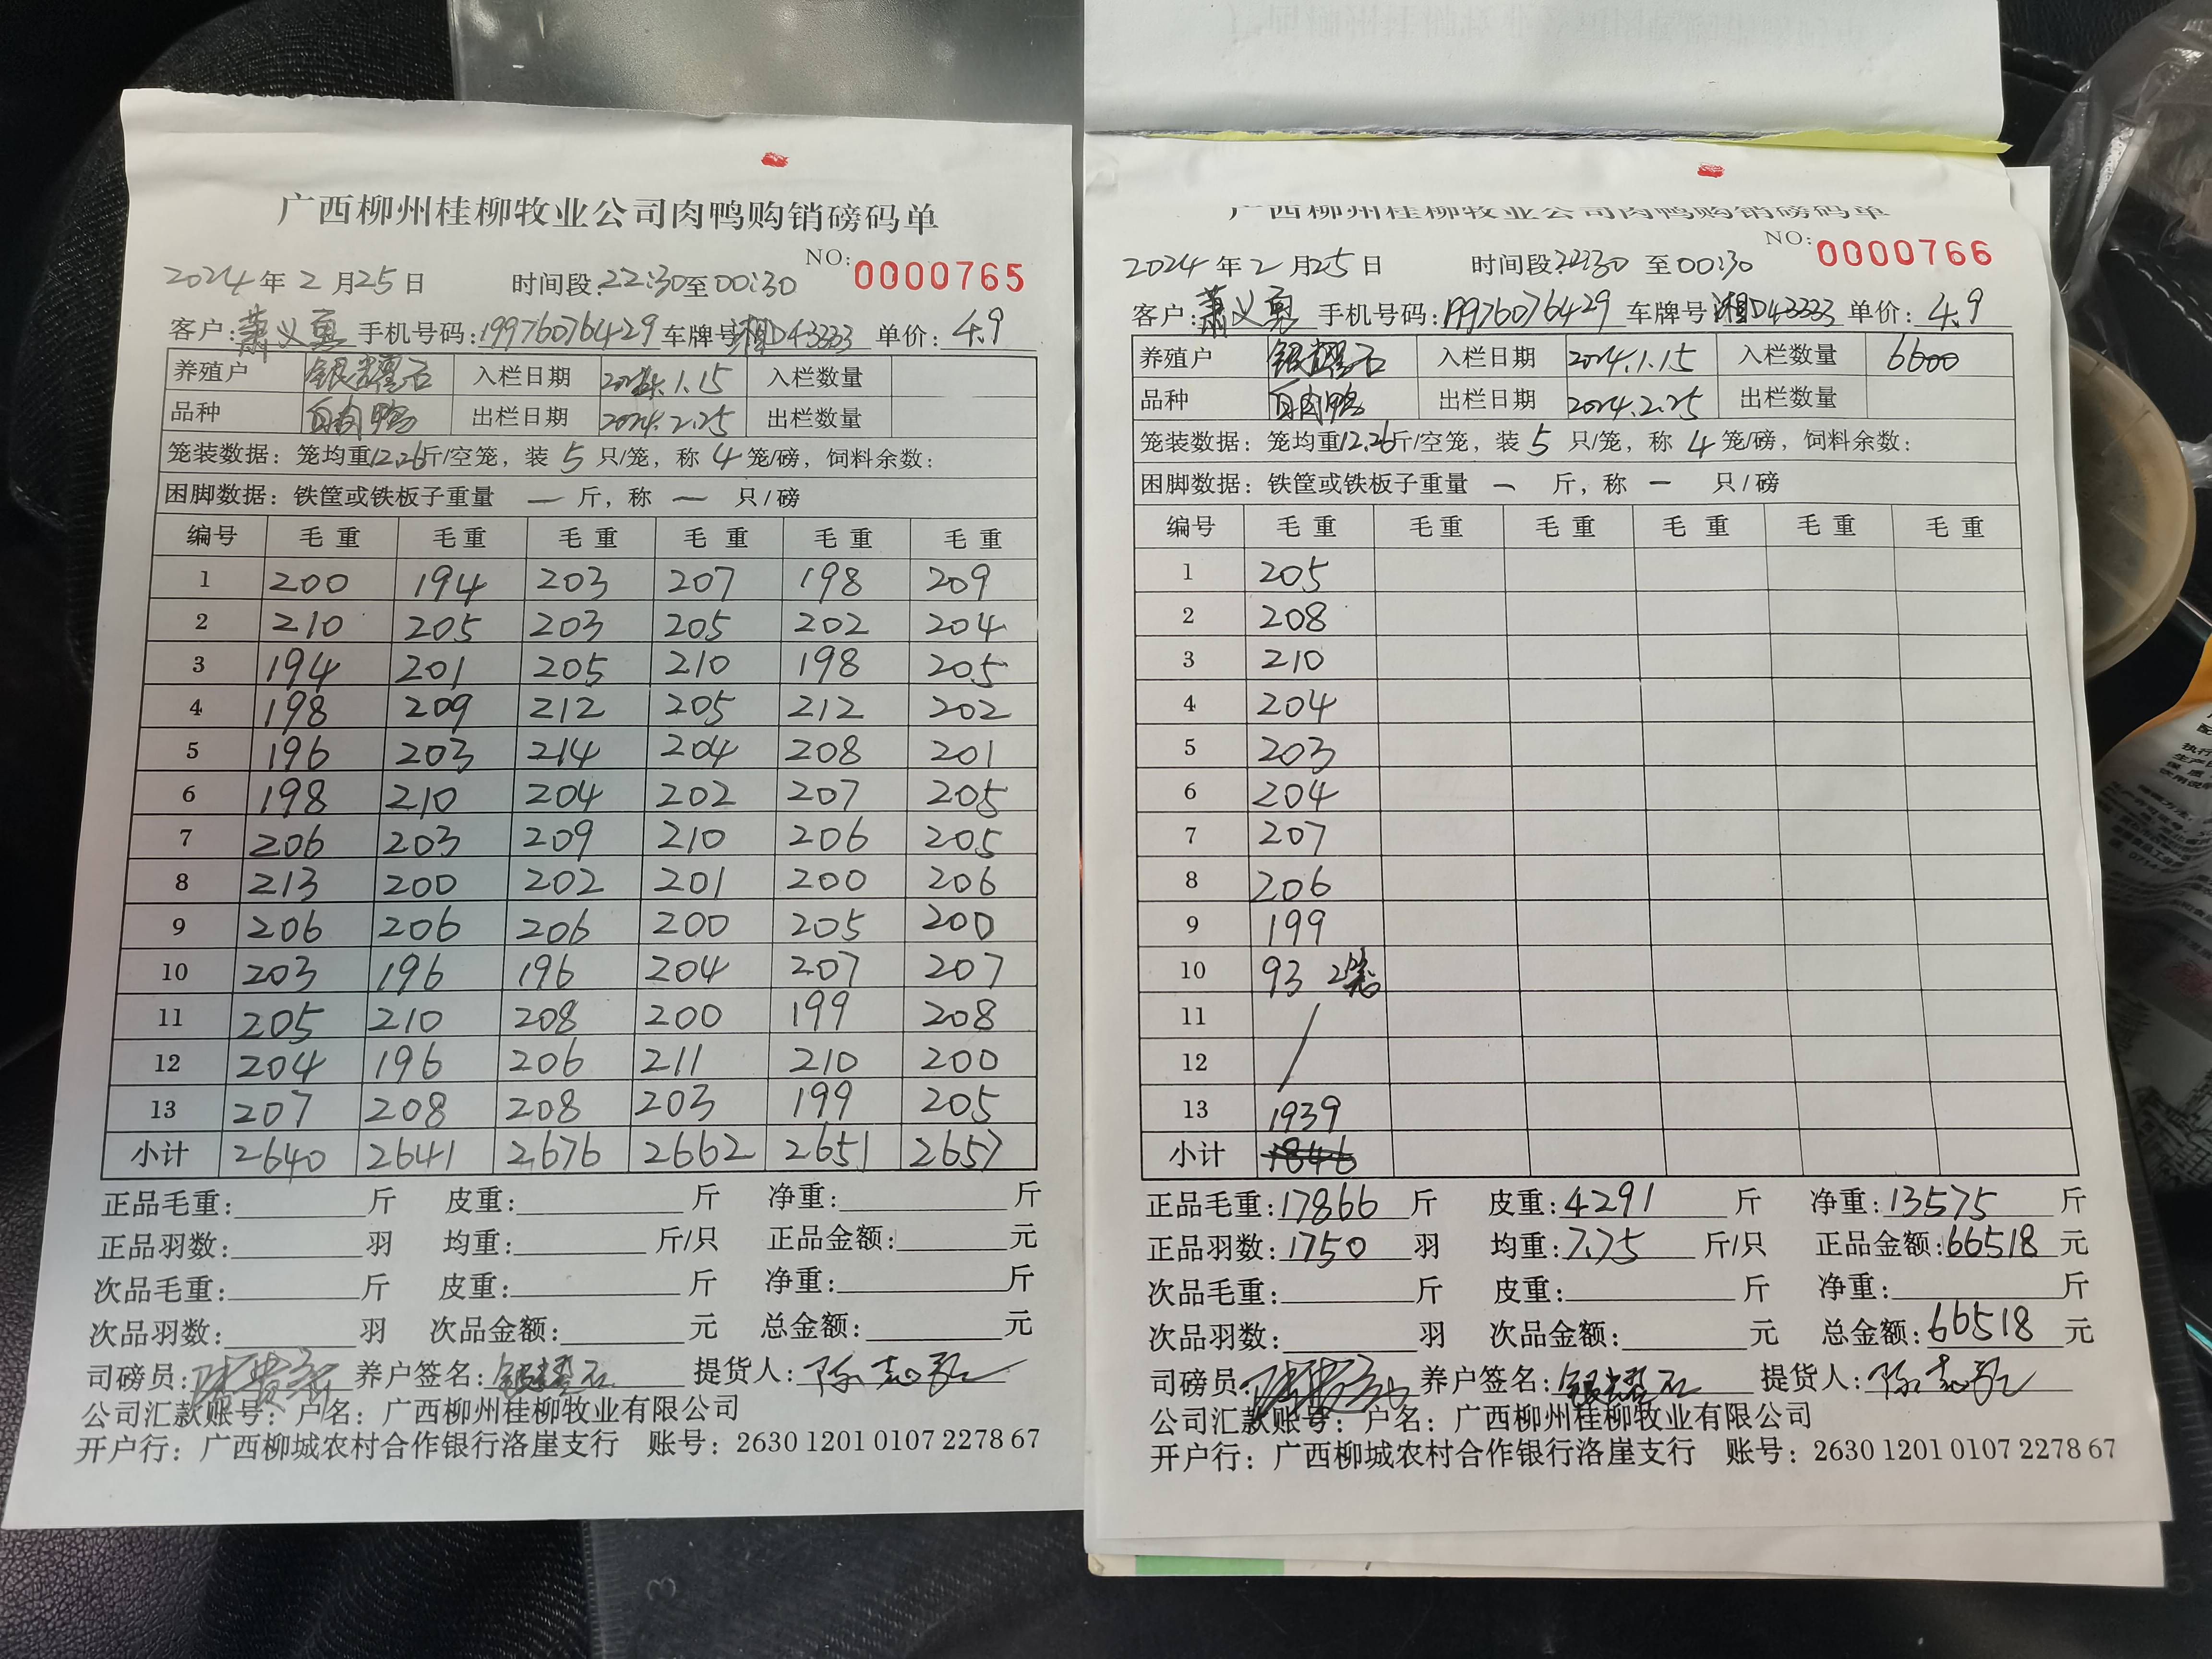 广西柳州桂柳牧业公司肉鸭购销磅码单
NO: 0000765
2024年2月25日 时间段:22:30至00:30
客户:萧义勇 手机号码:19976076429 车牌号湘D43333 单价:4.9
养殖户 银 石 入栏日期 2024.1.15 入栏数量
品种 白肉鸭 出栏日期 2024.2.25 出栏数量
笼装数据: 笼均重12.26斤/空笼, 装 5 只/笼, 称 4 笼/磅, 饲料余数:
困脚数据: 铁筐或铁板子重量 一 斤, 称 一 只/磅
编号 毛重 毛重 毛重 毛重 毛重 毛重
1 200 194 203 207 198 209
2 210 205 203 205 202 204
3 194 201 205 210 198 205
4 198 209 212 205 212 202
5 196 203 214 204 208 201
6 198 210 204 202 207 205
7 206 203 209 210 206 205
8 213 200 202 201 200 206
9 206 206 206 200 205 200
10 203 196 196 204 207 207
11 205 210 208 200 199 208
12 204 196 206 211 210 200
13 207 208 208 203 199 205
小计 2640 2641 2676 2662 2651 2657
正品毛重: 斤 皮重: 斤 净重: 斤
正品羽数: 羽 均重: 斤/只 正品金额: 元
次品毛重: 斤 皮重: 斤 净重: 斤
次品羽数: 羽 次品金额: 元 总金额: 元
司磅员: 养户签名: 银 石 提货人: 陈志
公司汇款账号: 户名: 广西柳州桂柳牧业有限公司
开户行: 广西柳城农村合作银行洛崖支行 账号: 2630 1201 0107 2278 67
广西柳州桂柳牧业公司肉鸭购销磅码单
NO: 0000766
2024年2月25日 时间段:22:30 至00:30
客户:萧义勇 手机号码:19976076429 车牌号湘D43333 单价:4.9
养殖户 银 石 入栏日期 2024.1.15 入栏数量 6600
品种 白肉鸭 出栏日期 2024.2.25 出栏数量
笼装数据: 笼均重12.26斤/空笼, 装 5 只/笼, 称 4 笼/磅, 饲料余数:
困脚数据: 铁筐或铁板子重量 一 斤, 称 一 只/磅
编号 毛重 毛重 毛重 毛重 毛重 毛重
1 205
2 208
3 210
4 204
5 203
6 204
7 207
8 206
9 199
10 93 2笼
11
12
13 1939
小计 1846
正品毛重:17866 斤 皮重:4291 斤 净重:13575 斤
正品羽数:1750 羽 均重:7.75 斤/只 正品金额:66518 元
次品毛重: 斤 皮重: 斤 净重: 斤
次品羽数: 羽 次品金额: 元 总金额:66518 元
司磅员: 养户签名: 银 石 提货人: 陈志
公司汇款账号: 户名: 广西柳州桂柳牧业有限公司
开户行: 广西柳城农村合作银行洛崖支行 账号: 2630 1201 0107 2278 67